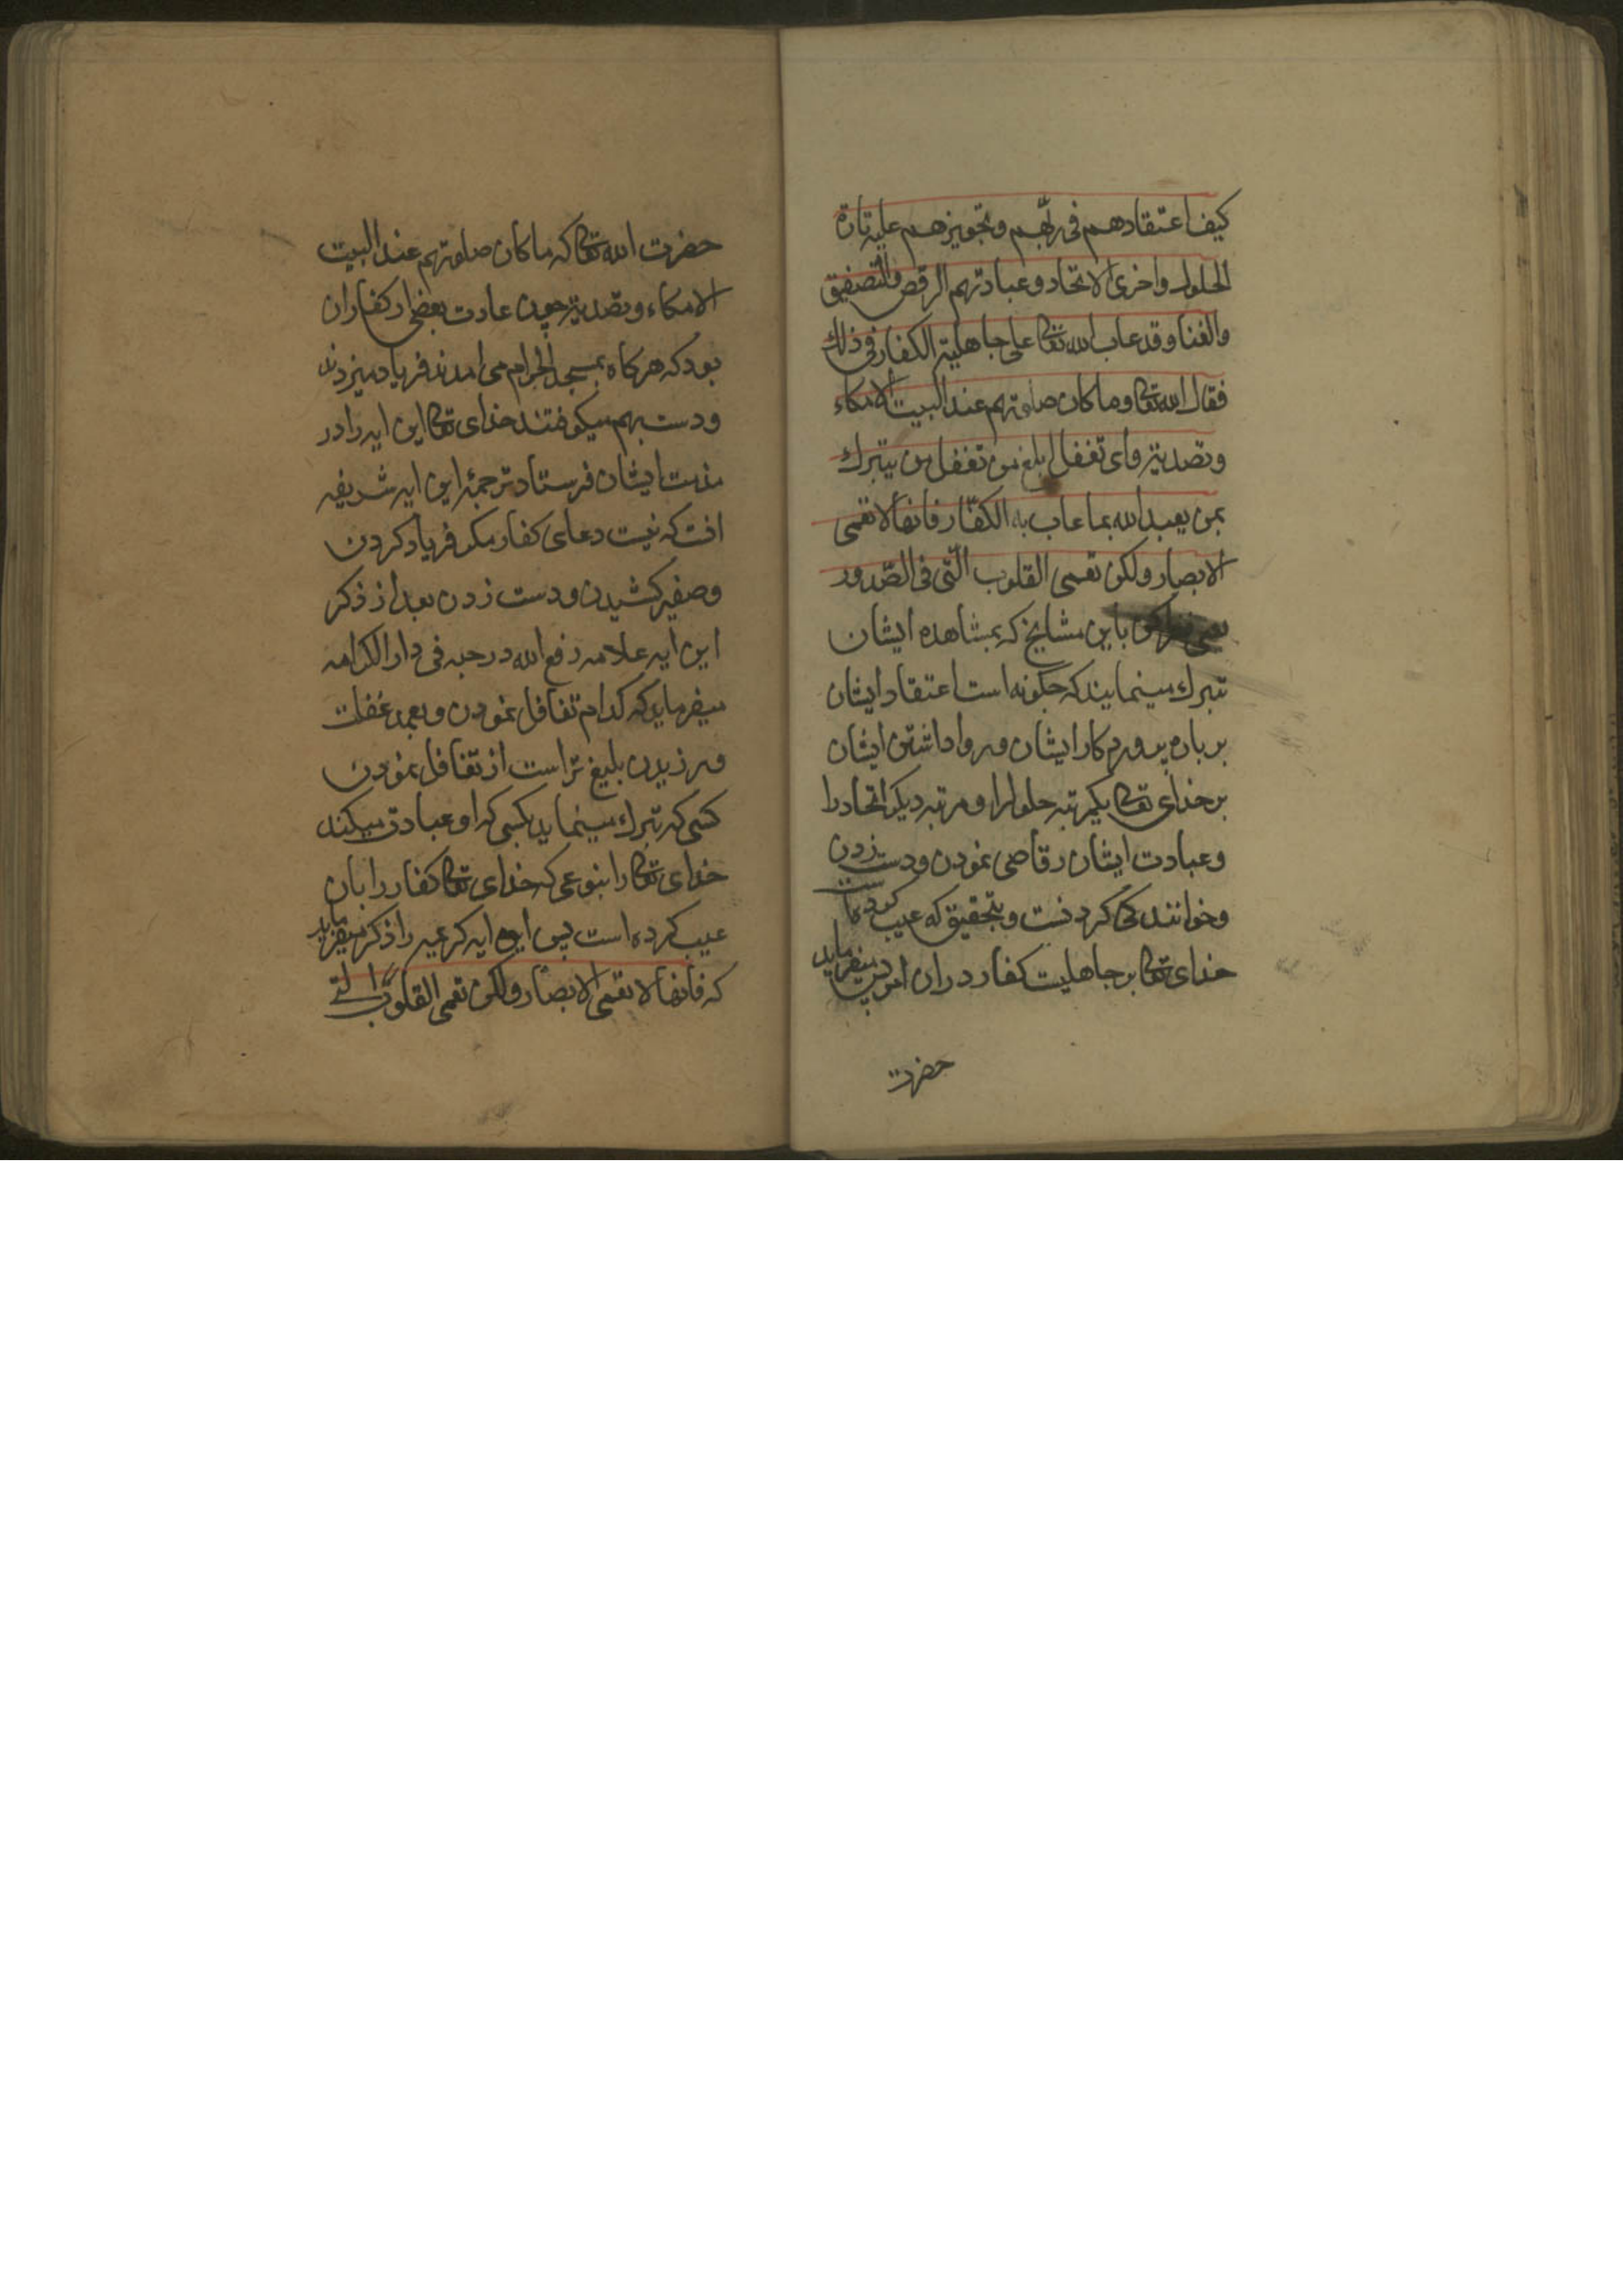 كيف اعتقادهم فى ربّهم وتجويزهم عليه تارة
الحلول واخرى الاتحاد وعبادتهم الرقص والتصفيق
والغنا وقد عاب الله تعالى على جاهلية الكفار فى ذلك
فقال الله تعالى وما كان صلوتهم عند البيت الا مكاء
وتصدية واى تغفل ابلغ من تغفل من يتبرك
بمن يعبد الله بما عاب به الكفّار فانها لا تعمى
الابصار ولكن تعمى القلوب الّتى فى الصّدور
يعنى باين مشايخ كه بمشاهده ايشان
تبرك مينمايند كه چگونه است اعتقاد ايشان
بر خداى تعالى يكمرتبه حلول را ومرتبه ديكر اتحاد را
وعبادت ايشان رقاصى نمودن ودست زدن
وخوانندكى كردنست وبتحقيق كه عيب كرده است
خداى تعالى بر جاهليت كفار در اين امر پس ميفرمايد
حضرت
حضرت الله تعالى كه ما كان صلوتهم عند البيت
الا مكاء وتصدية چون عادت بعضى از كفار ان
بود كه هركاه بمسجد الحرام مى امدند فرياد ميزدند
ودست بهم ميكوفتند خداى تعالى اين ايه را در
مذمت ايشان فرستاد ترجمهٔ اين ايه شريفه
انست كه نيست دعاى كفار مكر فرياد كردن
وصفير كشيدن ودست زدن بعد از ذكر
اين ايه علامه رفع الله درجته فى دار الكرامه
ميفرمايد كه كدام تغافل نمودن وبعمد غفلت
ورزيدن بليغ تر است از تغافل نمودن
كسى كه تبرك مينمايد بكسى كه او عبادت ميكند
خداى تعالى را بنوعى كه خداى تعالى كفار را بان
عيب كرده است پس اين ايه كريمه را ذكر ميفرمايد
كه فانها لا تعمى الابصار ولكن تعمى القلوب التى